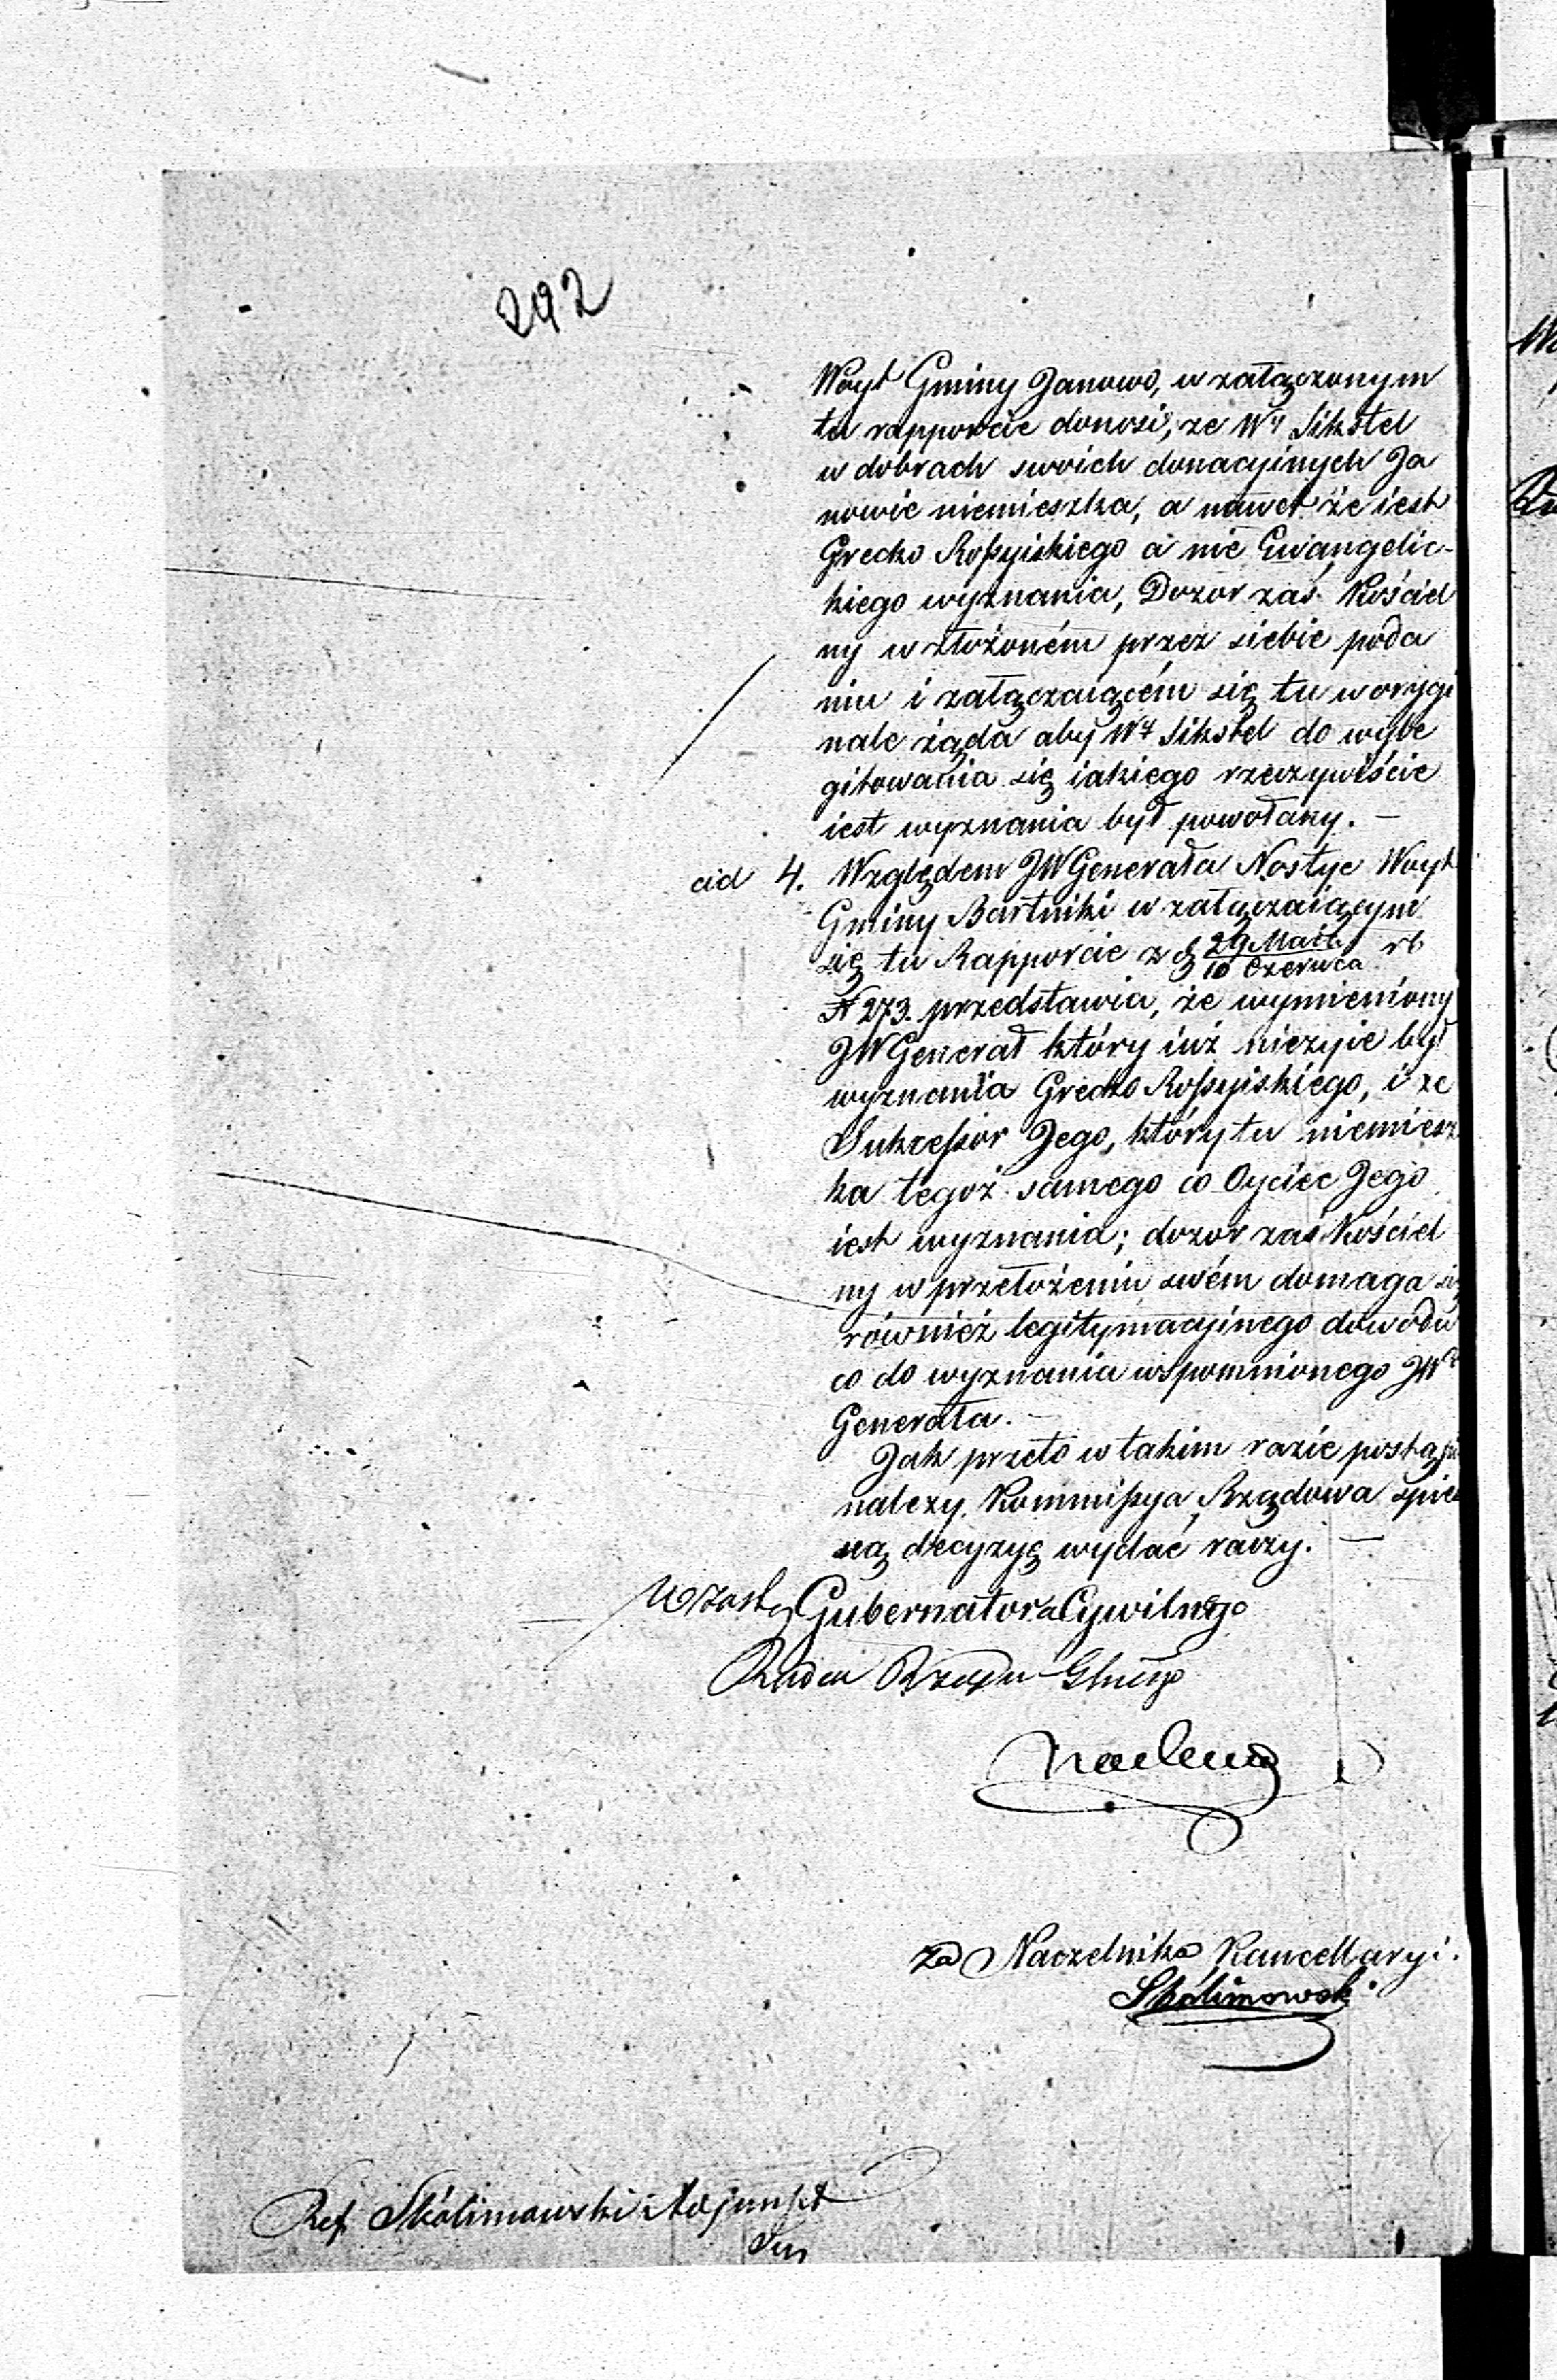 292
Woyt Gminy Janowo, w załączonym
tu rapporcie donosi, ze Wy Sikstel
w dobrach swoich donacyinych Ja
nowie niemieszka, a nawet że iest
Grecko Roßyiskiego a nie Ewangelic-
kiego wyznania, Dozor zaś Kościel
ny w złożoném przez siebie poda
niu i załączaiącém się tu w orygi
nale żąda aby Wy Sikstel do wyle
gitowania się iakiego rzeczywiście
iest wyznania był powołany. —
ad 4. Względem JW Generała Nostyc Woyt
Gminy Bartniki w załączaiącym
się tu Rapporcie z d 29 Maia / 10 Czerwca rb
N 273. przedstawia, że wymieniony
JW Generał który iuż nieżyie był
wyznania Grecko Roßyiskiego, i ze
Sukceßor Jego, który tu niemiesz
ka tegoż samego co Oyciec Jego
iest wyznania; dozor zaś Kościel
ny w przełożeniu swém domaga się
również legitymacyinego dowodu
co do wyznania wspomnionego JWo
Generała. —
Jak przeto w takim razie postąpić
nalezy, Kommißya Rządowa spiesz
ną decyzyę wydać raczy. —
w zastę Gubernatora Cywilnego
Radca Rządu Gbnego
za Naczelnika Kancellaryi.
Skolimowski
Ref. Skolimowski Adjunkt